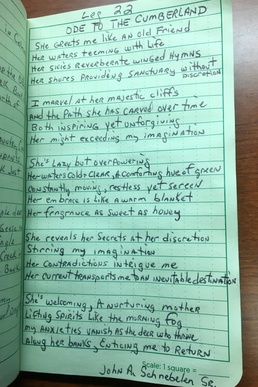 Leg 22
ODE TO THE CUMBERLAND
She Greets me like an old Friend
Her waters teeming with Life
Her Skies Reverberate winged Hymns
Her shores Providing Sanctuary without
DISCRETION
I marvel at her majestic cliffs
and the Path she has carved over time
Both inspiring yet unforgiving
Her might exceeding my imagination
She's Lazy but overpowering
Her waters Cold & Clear, A comforting hue of green
Constantly moving, restless yet sereen
Her embrace is like a warm blanket
Her fragrance as sweet as honey
She reveals her Secrets at her discretion
Stirring my imagination
Her Contradictions intrigue me
Her current transports me to an inevitable destination
She's welcoming, A nurturing mother
Lifting Spirits like the morning fog
my Anxieties vanish as the deer who thrive
Along her banks, Enticing me to Return
scale: 1 square =
John A. Schnebelen Sr.